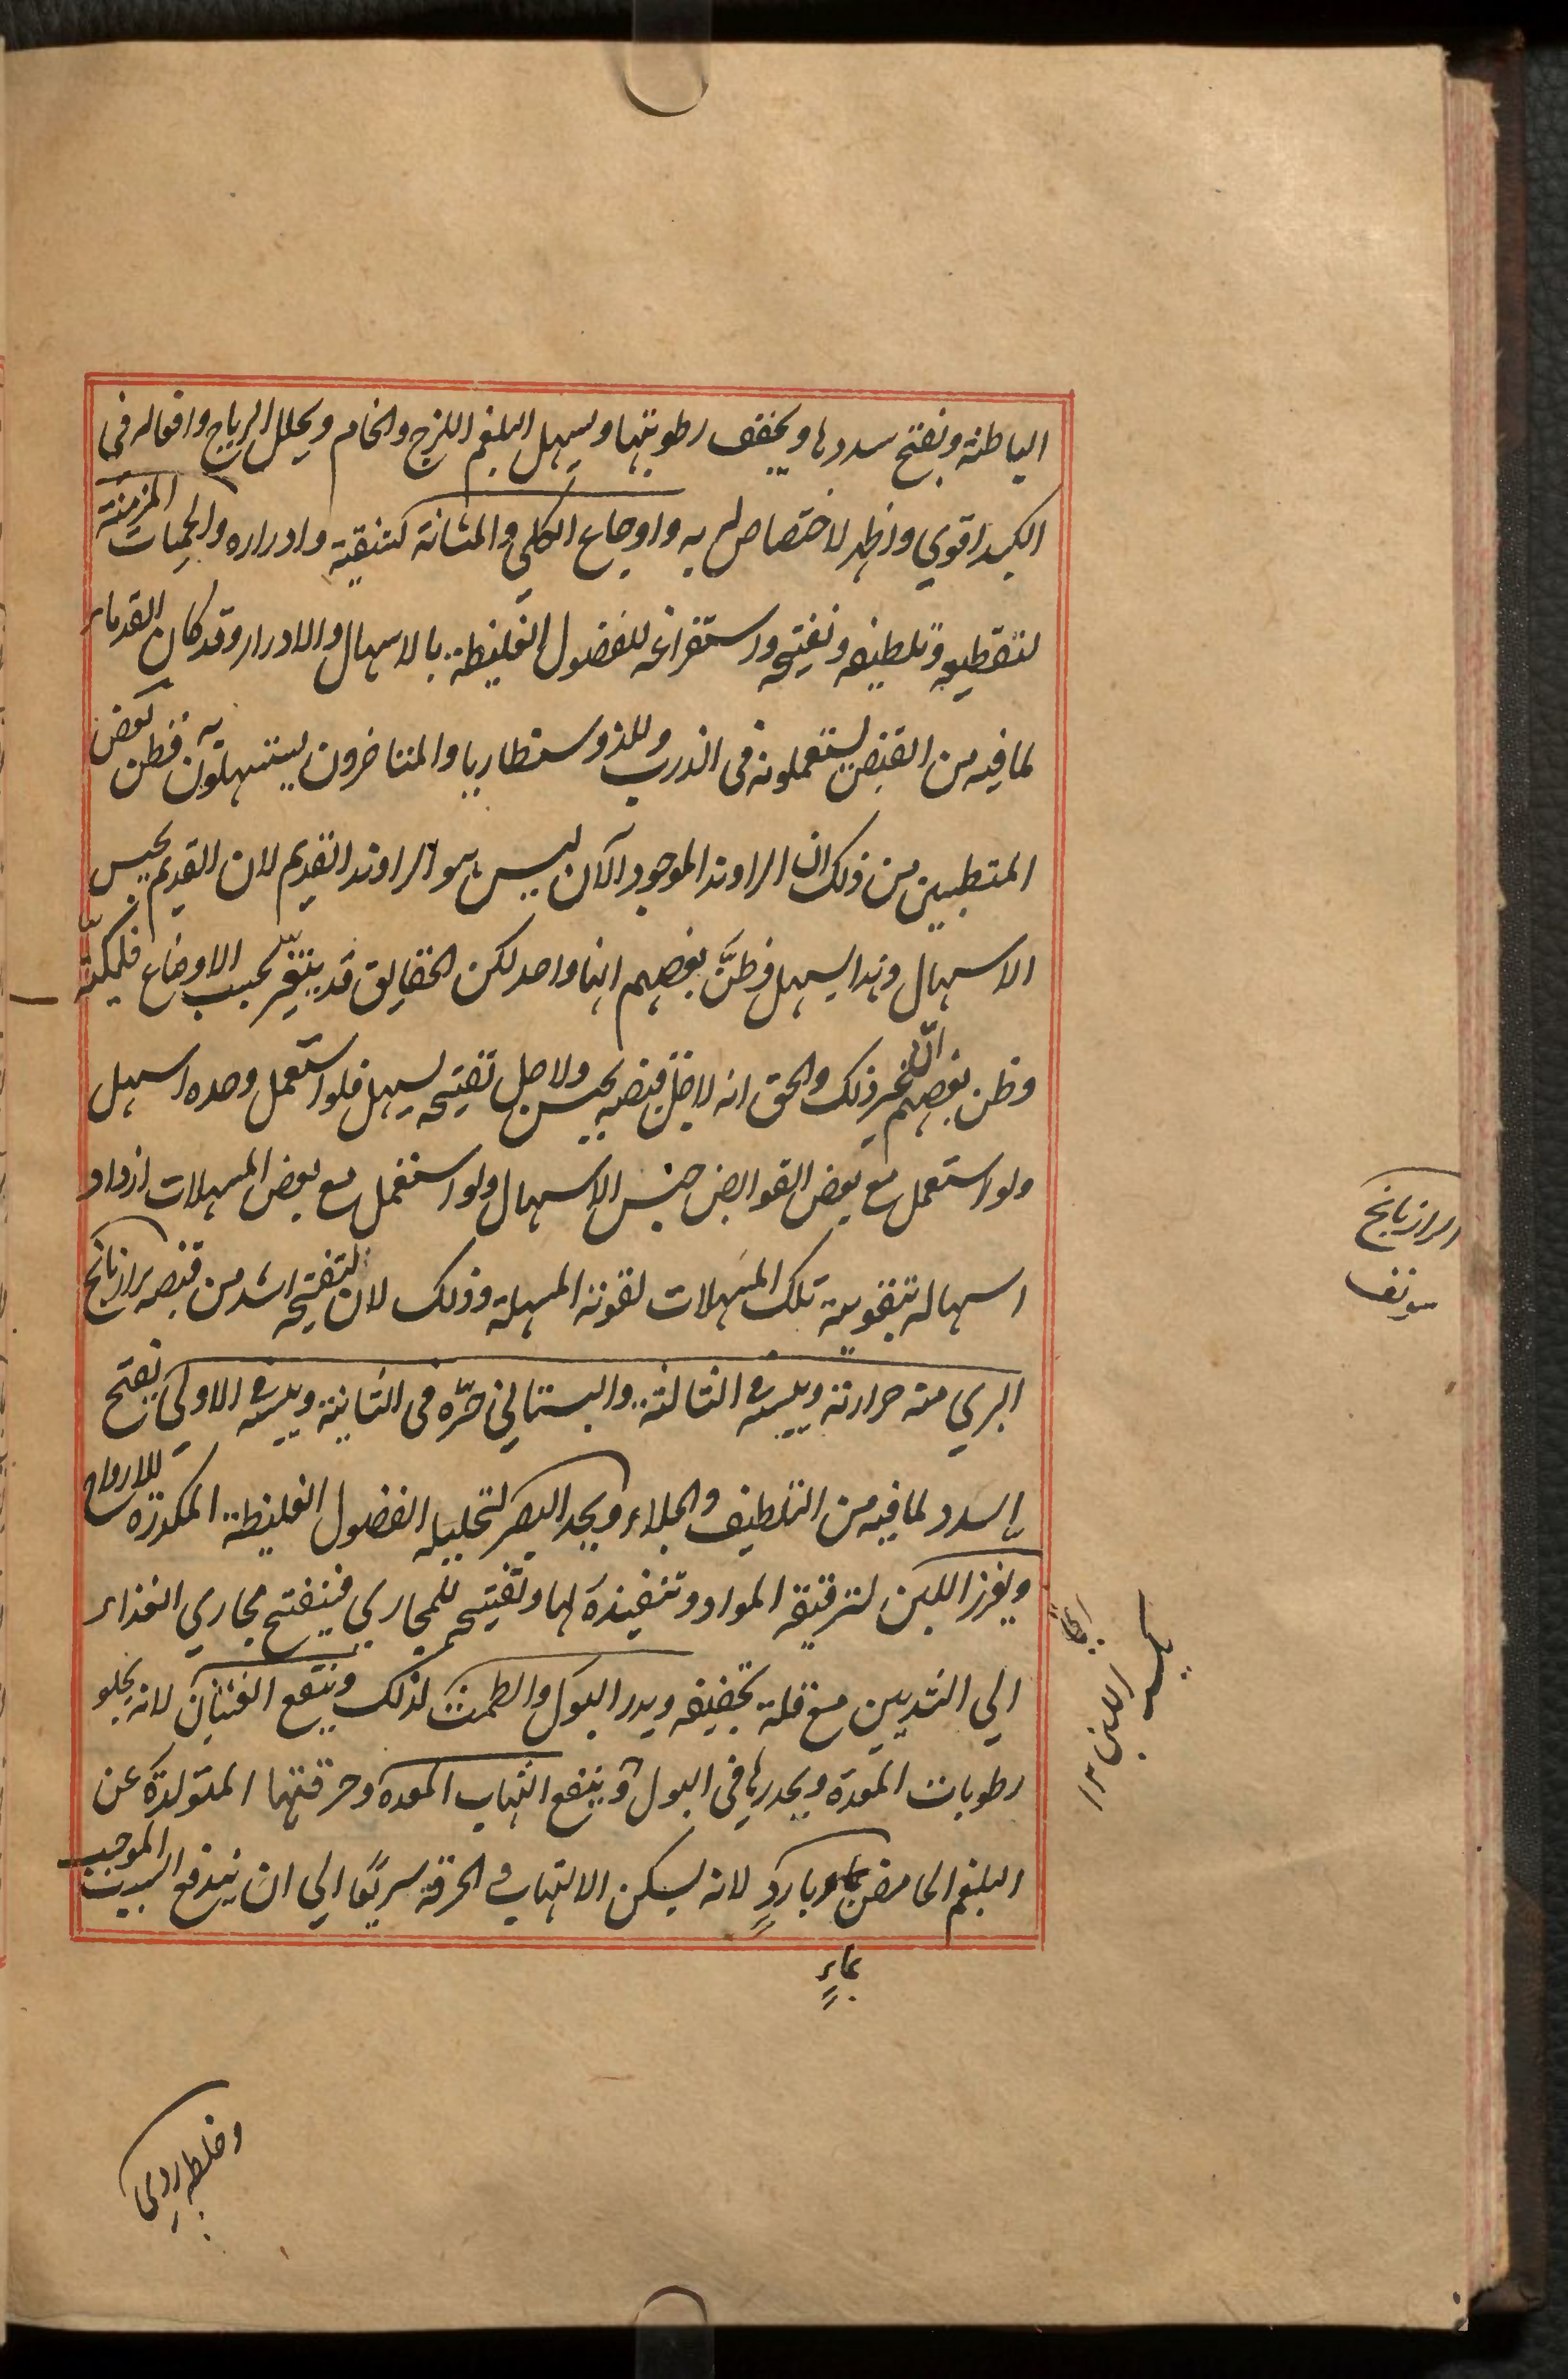 الباطنة ونفتح سددها ويجفف رطوبتها ويسهل البلغم اللزج والخام ويحلل الرياح وافعاله في
الكبد اقوي واظهر لاختصاص له به واوجاع الكلي والمثانة لتنقيته وادراره والحميات المزمنة
لتقطيعه وتلطيفه وتفتيحه واستفراغه للفضول الغليظة بالاسهال والادرار وقد كان القدماء
لما فيه من القبض يستعملونه في الذرب وللذوسنطاريا والمتاخرون يستسهلون به فظن بعض
المتطببين من ذلك ان الراوند الموجود الآن ليس هو الراوند القديم لان القديم يحبس
الاسهال وهذا يسهل وظنَّ بعضهم انهما واحد لكن الحقايق قد يتغيّر بحسب الاوضاع فلمكنه
وظن بعضهم غير ذلك والحق انه لاجل قبضه يحبس ولاجل تفتيحه يسهل فلو استعمل وحده اسهل
ولو استعمل مع بعض القوابض حبس الاسهال ولو استعمل مع بعض المسهلات ازداد
اسهاله بتقوية تلك المسهلات لقوته المسهلة وذلك لان تفتيحه اشد من قبضه رازيانج
البري منه حرارته ويبسه في الثالثة والبستاني حرّه في الثانية ويبسه في الاولى يفتح
السدد لما فيه من التلطيف والجلاء ويحد البصر لتحليله الفضول الغليظة المكدرة للارواح
ويغزر اللبن لترقيقه المواد وتنفيذه لها وتفتيحه للمجاري فينفتح مجاري الغذاء
الي الثديين مع قلة تجفيفه ويدر البول والطمث لذلك وينفع الغثيان لانه يجلو
رطوبات المعدة ويحدرها في البول وينفع التهاب المعدة وحرقتها المتولدة عن
البلغم الحامض بماء باردٍ لانه يسكن الالتهاب والحرقة سريعًا الي ان يندفع السبب الموجب
بماءٍ
وخلطه ردي
الرازيانج
سونف
اللبن ١٢